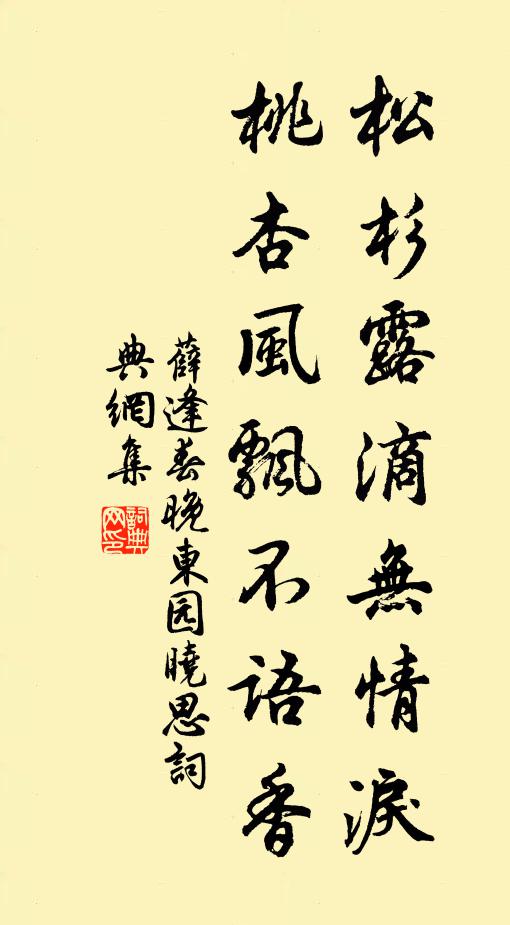 松杉露滴無情淚
桃杏風飄不語香
薛逢春晚東园曉思詞
典網集
詞典
网印